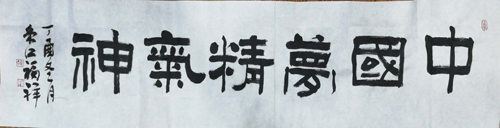 中國夢精氣神
丁酉冬月
江福祥